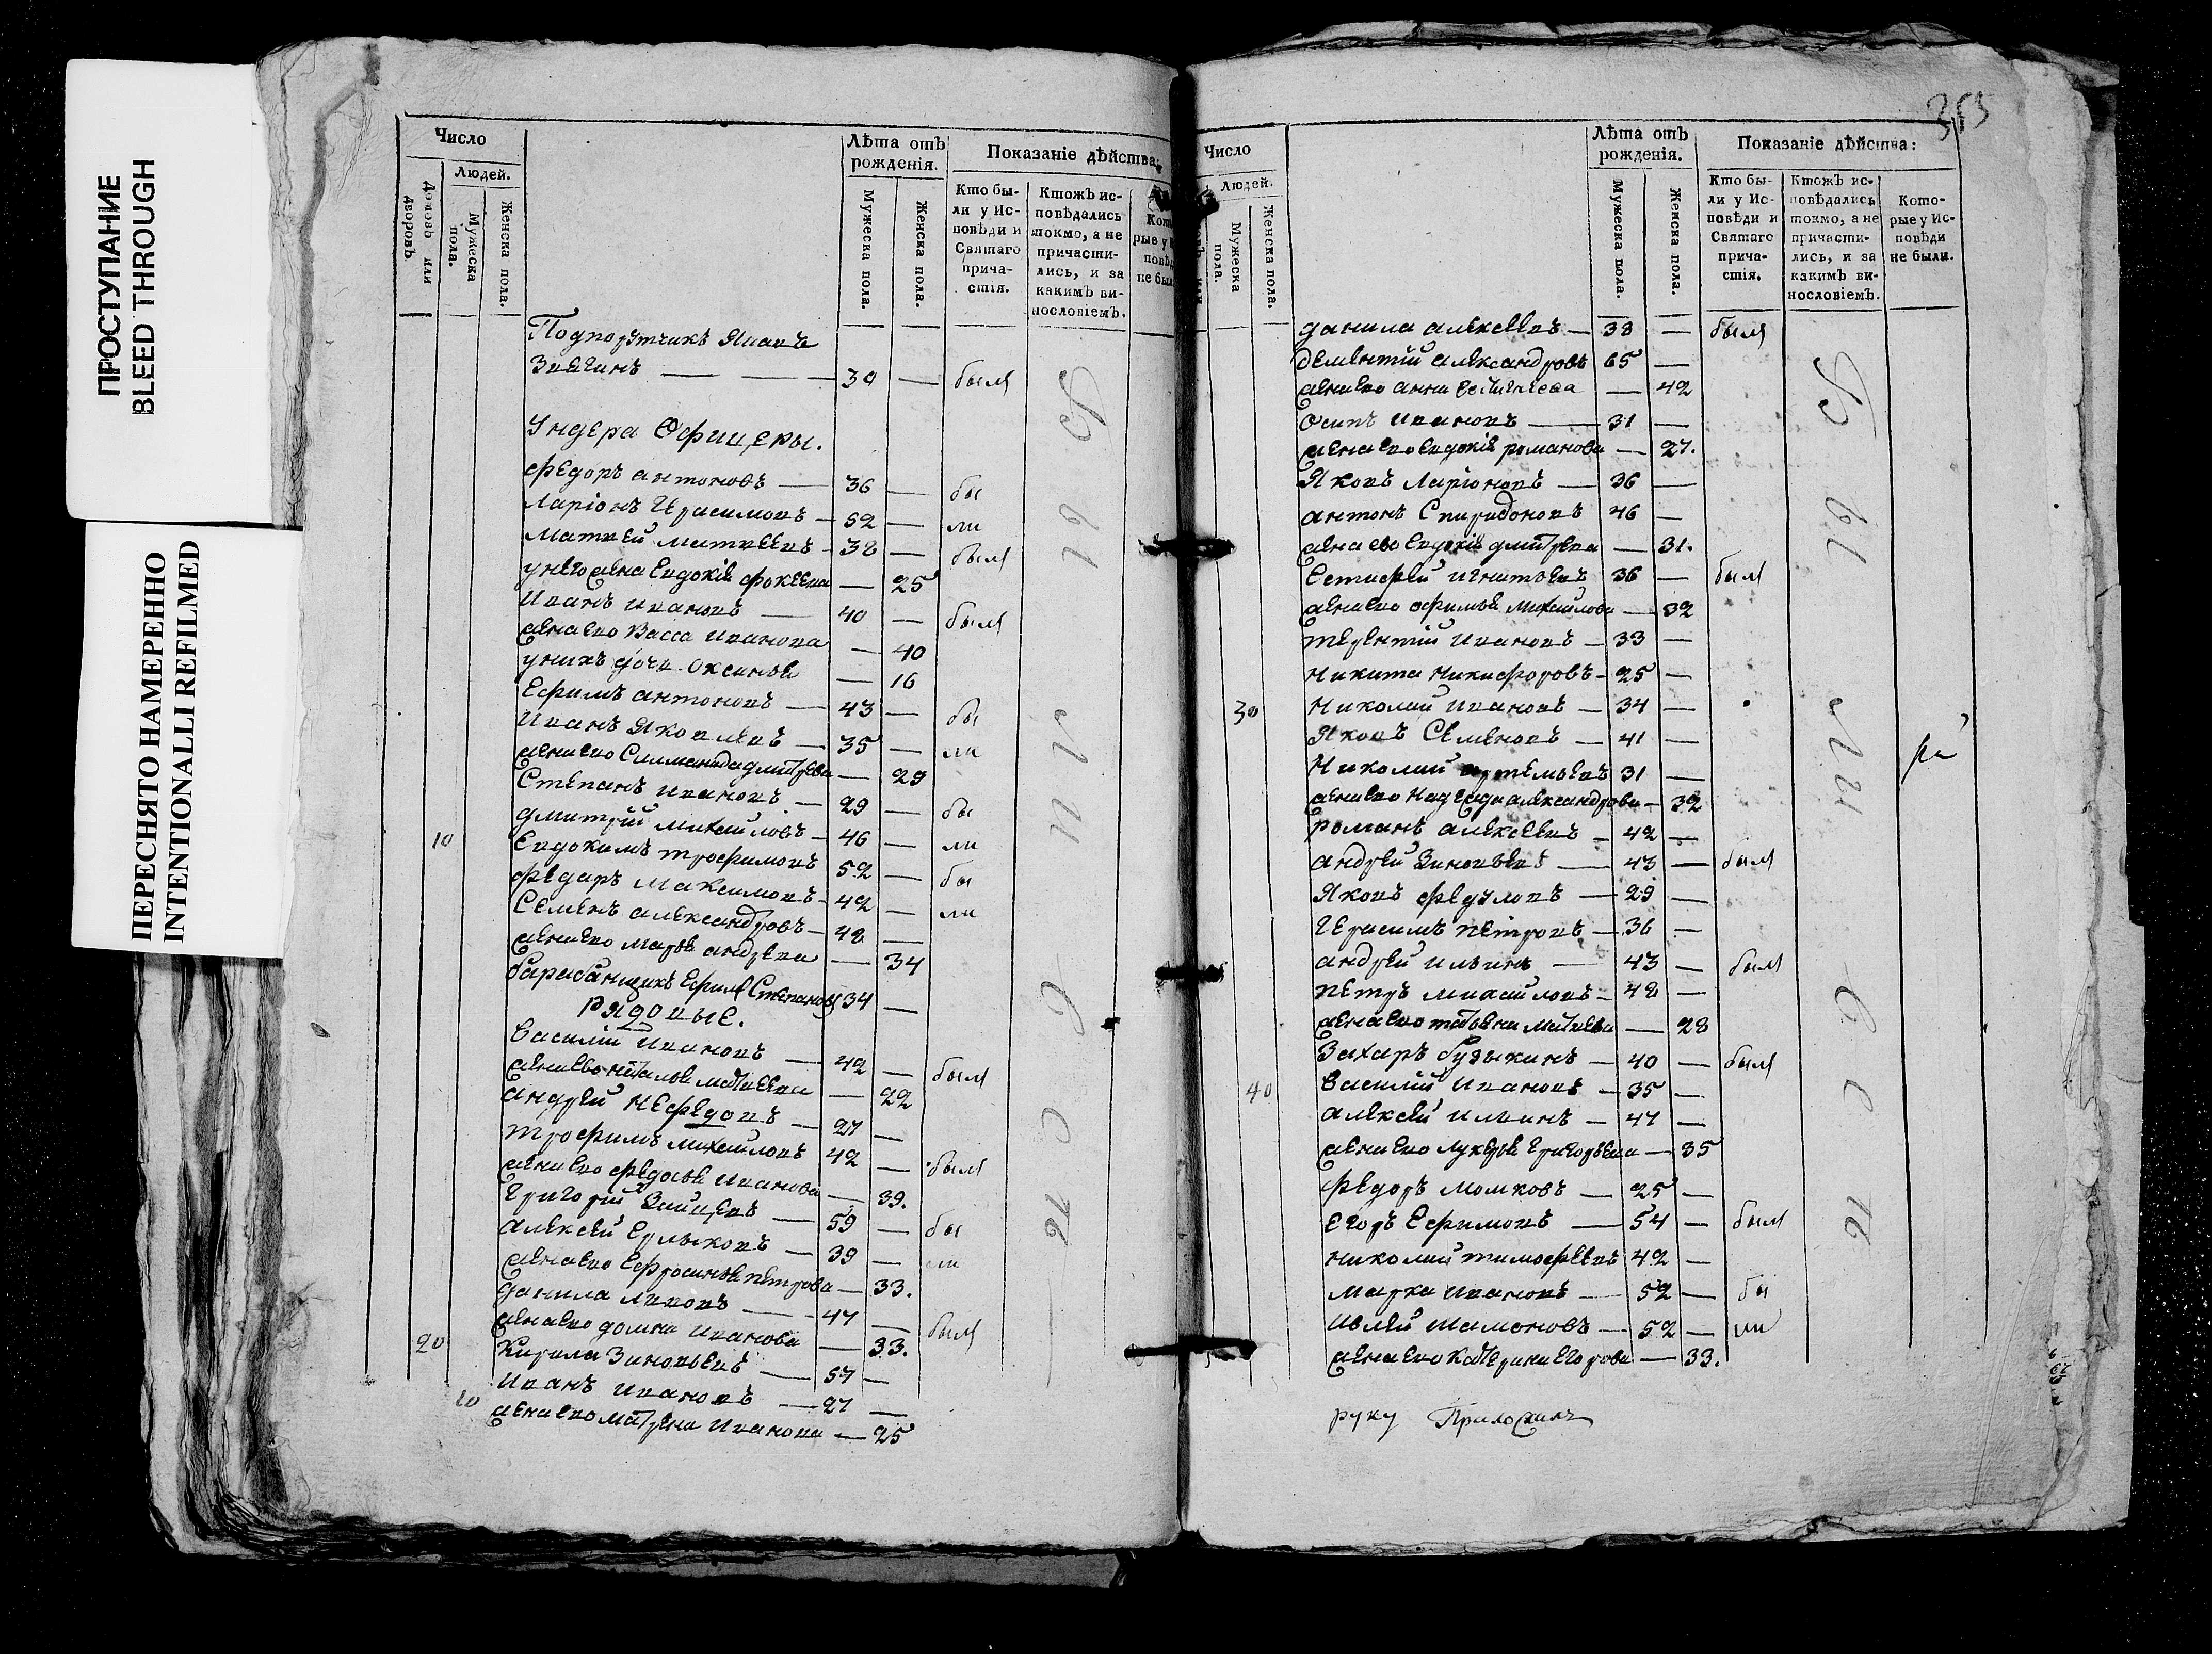 ПРОСТУПАНИЕ
BLEED THROUGH
ПЕРЕСНЯТО НАМЕРЕННО
INTENTIONALLI REFILMED
Число
Людей.
Домовъ или дворовъ.
Мужеска пола.
Женска пола.
Лѣта отъ рожденія.
Мужеска пола.
Женска пола.
Показаніе дѣйства:
Кто были у Исповѣди и Святаго причастія.
Ктожъ исповѣдались токмо, а не причастились, и за какимъ винословіемъ.
Подпорутчикъ Яковъ
Звягинъ — 30 — былъ
Ундера Офицеры.
Федоръ Антоновъ — 36 — бы
Ларіонъ Герасимовъ — 52 — ли
Матвей Матвеевъ — 38 — былъ
у него жена Евдокія Фокеева — 25
Иванъ Ивановъ — 40 — былъ
жена ево Васса Иванова — 40
у нихъ дочь Оксинья — 16
Ефимъ Антоновъ — 43 — бы
Иванъ Яковлевъ — 35 — ли
жена ево Соломанида Дмитрева — 29
Степанъ Ивановъ — 29 — бы
10 Дмитрій Михайловъ — 46 — ли
Евдокимъ Трофимовъ 52 — бы
Федаръ Максимовъ — 42 — ли
Семенъ Александровъ — 48 —
жена ево Марья Андрева — 34
барабанщикъ Ефимъ Степановъ 34 —
Рядовые.
Василій Ивановъ — 42 — былъ
жена ево Наталья Матвеева — 22
Андрей Нефедовъ — 27 —
Трофимъ Михайловъ 42 — былъ
жена ево Федосья Иванова — 39.
Григорій Зайцевъ — 59 — бы
Алексей Ерлыковъ — 39 — ли
жена ево Ефросинья Петрова — 33.
Данила Львовъ — 47 — былъ
жена ево Домна Иванова — 33.
20 Кирила Зиновьевъ — 57 —
Иванъ Ивановъ — 27 —
10 жена ево Матрена Иванова — 25
353
Число
Людей.
Мужеска пола.
Женска пола.
Лѣта отъ рожденія.
Мужеска пола.
Женска пола.
Показаніе дѣйства:
Кто были у Исповѣди и Святаго причастія.
Ктожъ исповѣдались токмо, а не причастились, и за какимъ винословіемъ.
Которые у Исповѣди не были.
Данила Алексеевъ — 38 — былъ
Дементій Александровъ 65 —
жена ево Анна — 42
Осипъ Ивановъ — 31 —
жена ево Евдокія Романова — 27.
Яковъ Ларіоновъ — 36 —
Антонъ Спиридоновъ 46 —
жена ево Евдокія Дмитрева — 31.
Естифей Игнатьевъ 36 — былъ
жена ево Офимья Михайлова — 32
Терентій Ивановъ — 33 —
Никита Никифоровъ — 25 —
30 Николай Ивановъ — 34 —
Яковъ Семеновъ — 41 —
Николай Артемьевъ 31 —
жена ево Надежда Александрова — 32
Романъ Алексеевъ — 42 —
Андрей Зиновьевъ — 43 — былъ
Яковъ Федуловъ — 29 —
Герасимъ Петровъ — 36 —
Андрей Ильинъ — 43 — былъ
Петръ Михайловъ — 48 —
жена ево Татьяна Матвева — 28
Захаръ Гузыкинъ — 40 — былъ
40 Василій Ивановъ — 35 —
Алексей Ильинъ — 47 —
жена ево Лукерья Григорьева — 35
Федоръ Момковъ — 25 —
Егоръ Ефимовъ — 54 — былъ
Николай Тимофеевъ 42 —
Марка Ивановъ — 52 — бы
Ивлей Мамоновъ — 52 — ли
жена ево Катерина Егорова — 33.
руку Приложилъ